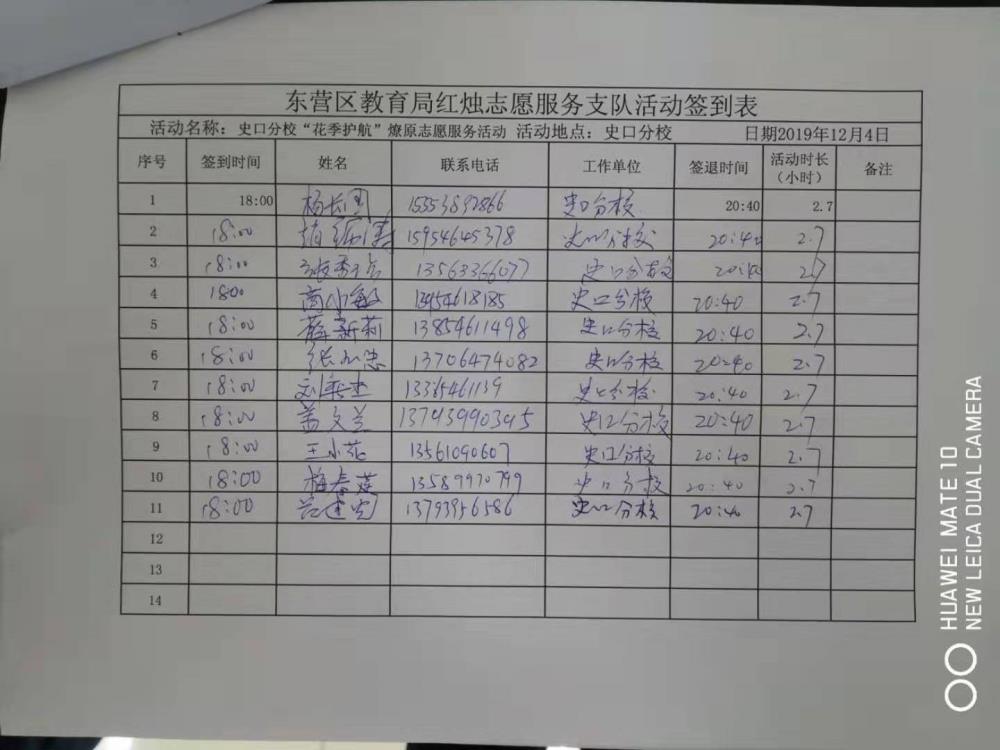 东营区教育局红烛志愿服务支队活动签到表
活动名称：史口分校“花季护航”燎原志愿服务活动 活动地点：史口分校 日期2019年12月4日
序号 签到时间 姓名 联系电话 工作单位 签退时间 活动时长（小时） 备注
1 18:00 杨长国 15553832866 史口分校 20:40 2.7
2 18:00 15954645378 史口分校 20:40 2.7
3 18:00 13563366077 史口分校 2.7
4 1800 商小敏 13954618185 史口分校 20:40 2.7
5 18:00 薛新莉 13854611498 史口分校 20:40 2.7
6 18:00 13706474082 史口分校 20:40 2.7
7 18:00 13365461139 史口分校 20:40 2.7
8 18:00 盖文兰 史口分校 20:40 2.7
9 18:00 王小花 13561090607 史口分校 20:40 2.7
10 18:00 梅春莲 13589970799 史口分校 20:40 2.7
11 18:00 吕建光 13793956586 史口分校 20:40 2.7
12
13
14
HUAWEI MATE 10
NEW LEICA DUAL CAMERA